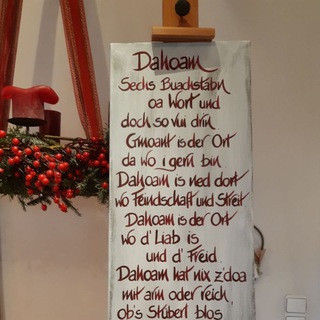 Dahoam
Sechs Buachstabn
oa Wort und
doch so vui drin
Gmoant is der Ort
da wo i gern bin
Dahoam is ned dort
wo Feindschaft und Streit
Dahoam is der Ort
wo d' Liab is
und d' Freid.
Dahoam hat nix z'doa
mit arm oder reich,
ob's Stüberl blos